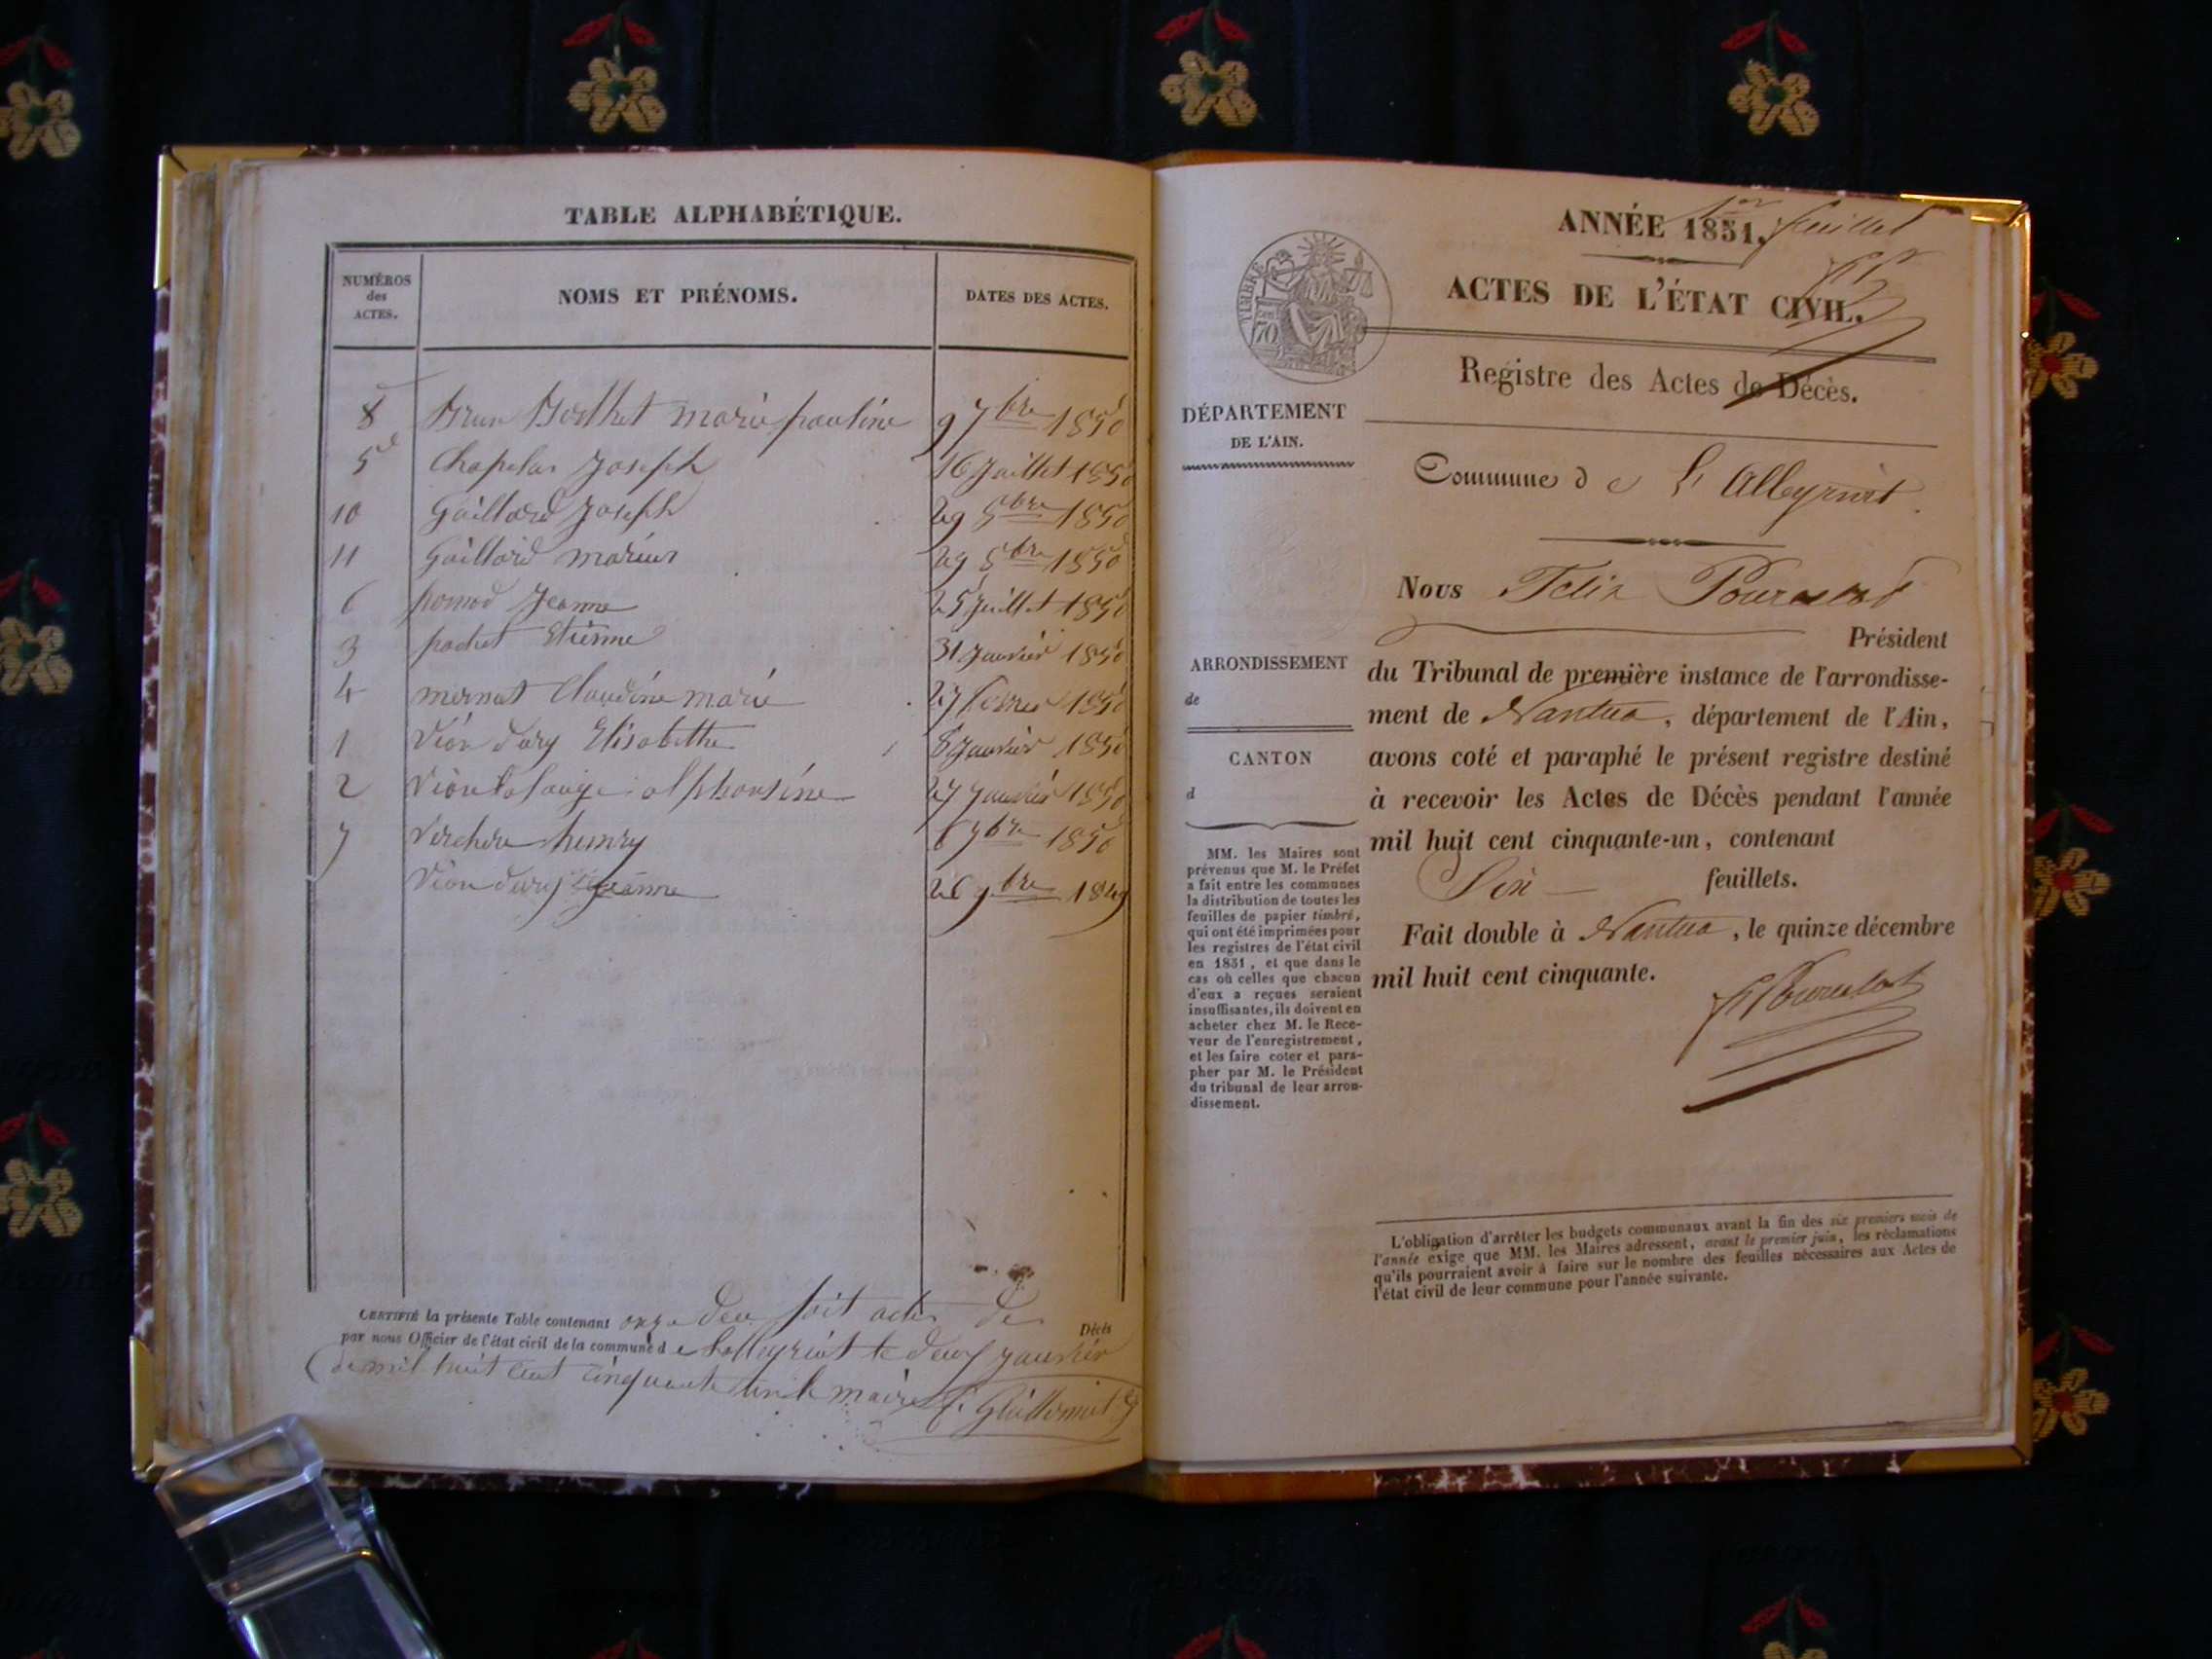 TABLE ALPHABÉTIQUE.
NUMÉROS
des
ACTES.
NOMS ET PRÉNOMS.
DATES DES ACTES.
8 Brun Berthet marie pauline 9 7bre 1850
5 Chapelar Joseph 16 Juillet 1850
10 Gaillard Joseph 29 8bre 1850
11 Gaillard marius 29 8bre 1850
6 Jeanne 25 Juillet 1850
3 pochet Etienne 31 Janvier 1850
4 mermet Claudine marie 27 1850
1 Vion dury Elisabethe 8 Janvier 1850
2 Vion alphonsine 27 Janvier 1850
7 Verchere henry 6 7bre 1850
Vion dury Jeanne 26 9bre 1849
CERTIFIÉ la présente Table contenant onze soit actes de Décès
par nous Officier de l'état civil de la commune de Lalleyriat le deux janvier
mil huit cent cinquante un le maire
ANNÉE 1851.
1er feuillet
ACTES DE L'ÉTAT CIVIL.
TIMBRE
70
Registre des Actes de Décès.
DÉPARTEMENT
DE L'AIN.
Commune de L'Alleyriat
Nous Felix
Président
ARRONDISSEMENT
de
du Tribunal de première instance de l'arrondisse-
ment de Nantua, département de l'Ain,
CANTON
d
avons coté et paraphé le présent registre destiné
à recevoir les Actes de Décès pendant l'année
mil huit cent cinquante-un, contenant
Six feuillets.
Fait double à Nantua, le quinze décembre
mil huit cent cinquante.
MM. les Maires sont
prévenus que M. le Préfet
a fait entre les communes
la distribution de toutes les
feuilles de papier timbré,
qui ont été imprimées pour
les registres de l'état civil
en 1851, et que dans le
cas où celles que chacun
d'eux a reçues seraient
insuffisantes, ils doivent en
acheter chez M. le Rece-
veur de l'enregistrement,
et les faire coter et para-
pher par M. le Président
du tribunal de leur arron-
dissement.
L'obligation d'arrêter les budgets communaux avant la fin des six premiers mois de
l'année exige que MM. les Maires adressent, avant le premier juin, les réclamations
qu'ils pourraient avoir à faire sur le nombre des feuilles nécessaires aux Actes de
l'état civil de leur commune pour l'année suivante.